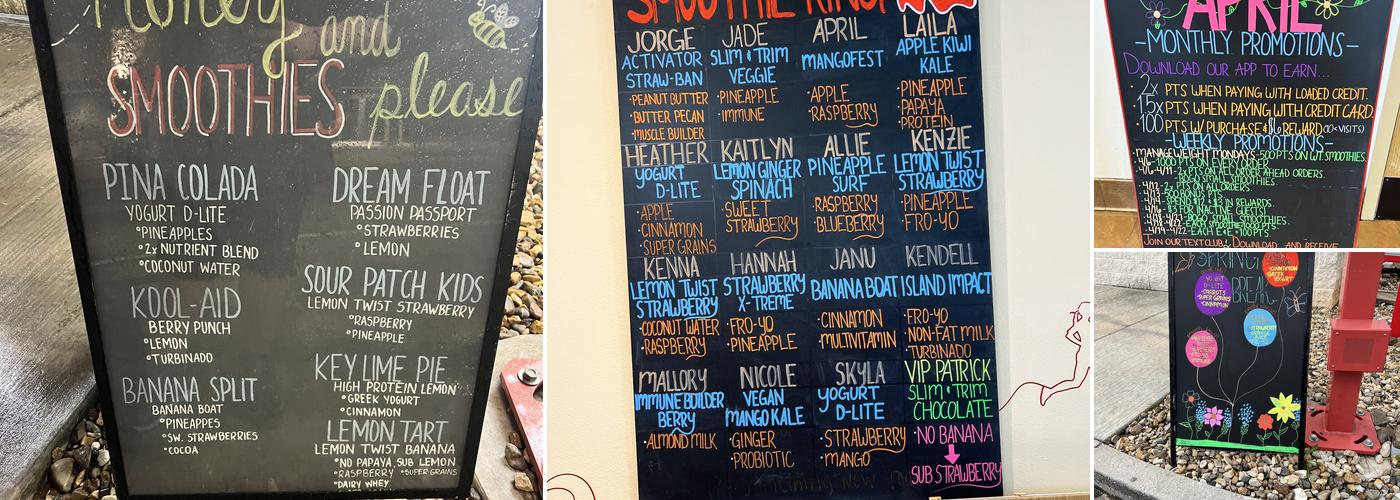 Honey and
SMOOTHIES please
PINA COLADA
YOGURT D-LITE
°PINEAPPLES
°2x NUTRIENT BLEND
°COCONUT WATER
KOOL-AID
BERRY PUNCH
°LEMON
°TURBINADO
BANANA SPLIT
BANANA BOAT
°PINEAPPES
°SW. STRAWBERRIES
°COCOA
DREAM FLOAT
PASSION PASSPORT
°STRAWBERRIES
°LEMON
SOUR PATCH KIDS
LEMON TWIST STRAWBERRY
°RASPBERRY
°PINEAPPLE
KEY LIME PIE
HIGH PROTEIN LEMON
°GREEK YOGURT
°CINNAMON
LEMON TART
LEMON TWIST BANANA
°NO PAPAYA, SUB LEMON
°RASPBERRY °SUPER GRAINS
°DAIRY WHEY
SMOOTHIE KING
JORGE
ACTIVATOR
STRAW-BAN
·PEANUT BUTTER
·BUTTER PECAN
·MUSCLE BUILDER
JADE
SLIM & TRIM
VEGGIE
·PINEAPPLE
·IMMUNE
APRIL
MANGOFEST
·APPLE
·RASPBERRY
LAILA
APPLE KIWI
KALE
·PINEAPPLE
·PAPAYA
·PROTEIN
HEATHER
YOGURT
D-LITE
·APPLE
·CINNAMON
·SUPER GRAINS
KAITLYN
LEMON GINGER
SPINACH
·SWEET
STRAWBERRY
ALLIE
PINEAPPLE
SURF
·RASPBERRY
·BLUEBERRY
KENZIE
LEMON TWIST
STRAWBERRY
·PINEAPPLE
·FRO-YO
KENNA
LEMON TWIST
STRAWBERRY
·COCONUT WATER
·RASPBERRY
HANNAH
STRAWBERRY
X-TREME
·FRO-YO
·PINEAPPLE
JANU
BANANA BOAT
·CINNAMON
·MULTIVITAMIN
KENDELL
ISLAND IMPACT
·FRO-YO
·NON-FAT MILK
·TURBINADO
MALLORY
IMMUNE BUILDER
BERRY
·ALMOND MILK
NICOLE
VEGAN
MANGO KALE
·GINGER
·PROBIOTIC
SKYLA
YOGURT
D-LITE
·STRAWBERRY
·MANGO
VIP PATRICK
SLIM & TRIM
CHOCOLATE
·NO BANANA
SUB STRAWBERRY
APRIL
-MONTHLY PROMOTIONS-
DOWNLOAD OUR APP TO EARN...
·2x PTS WHEN PAYING WITH LOADED CREDIT.
·1.5x PTS WHEN PAYING WITH CREDIT CARD.
·100 PTS W/ PURCHASE & $6 REWARD (10 VISITS)
-WEEKLY PROMOTIONS-
·MANAGE WEIGHT MONDAYS-500 PTS ON WT. SMOOTHIES
PTS ON EVERY ORDER
PTS ON ALL ORDER AHEAD ORDERS.
SMOOTHIES.
PTS ON ALL ORDERS
IN REWARDS.
INACTIVE GUESTS!
JOIN OUR TEXT CLUB! DOWNLOAD AND RECEIVE
SPRING
BREAK